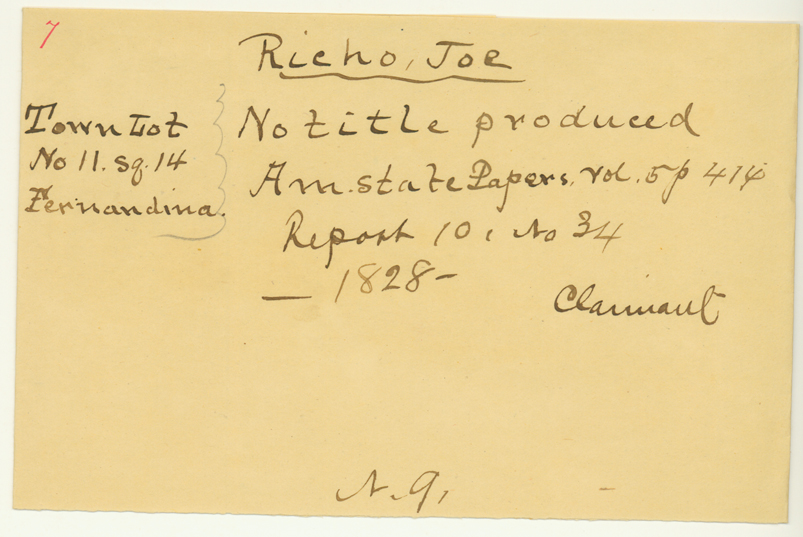 7
Richo, Joe
Town Lot
No 11. Sq. 14
Fernandina.
No title produced
Am. state Papers. Vol. 5 p 414
Report 10, No 34
— 1828 –
Claimant
N. 9,